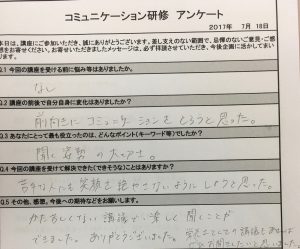 コミュニケーション研修 アンケート
2017年 7月 18日
本日は、講座にご参加いただき、誠にありがとうございます。差し支えのない範囲で、忌憚のないご意見・ご感
想をお寄せください。お寄せいただきましたメッセージは、必ず拝読させていただき、今後企画に活かしてまい
ります。
Q.1 今回の講座を受ける前に悩み等はありましたか。
なし
Q.2 講座の前後で自分自身に変化はありましたか?
前向きにコミュニケーションをとろうと思った。
Q.3 あなたにとって最も役立ったのは、どんなポイント(キーワード等)でしたか?
聞く姿勢の大切さ。
Q.4 今回の講座を受けて解決できた(できそうな)ことはありますか?
苦手な人にも笑顔を絶やさないようにしようと思った。
Q.5 その他、感想、今後への期待などをお願いします。
かた苦しくない講議で楽しく聞くことが
できました。ありがとうございました。